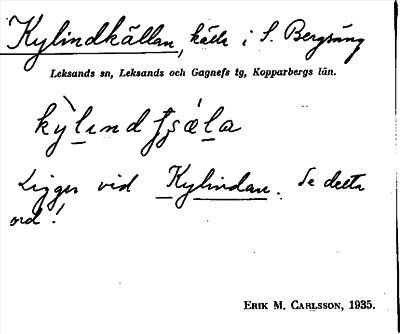 Kylindkällan, källa i S. Bergsäng
Leksands sn, Leksands och Gagnefs tg, Kopparbergs län.
Ligger vid Kylindan. Se detta
ord!
ERIK M. CARLSSON, 1935.